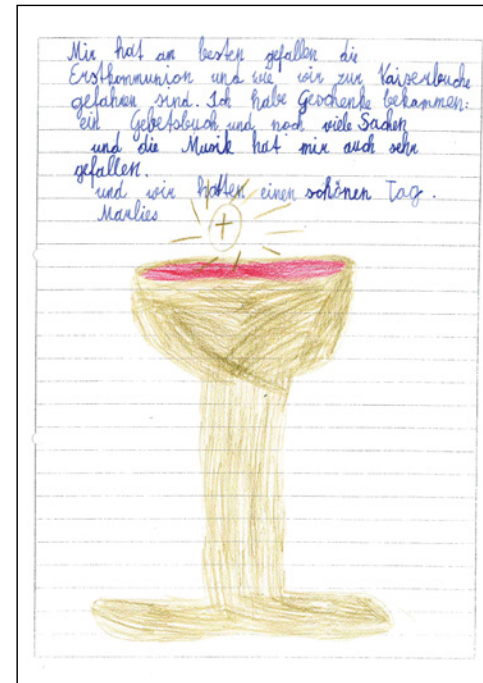 Mir hat am besten gefallen die
Erstkommunion und wie wir zur Kaiserbuche
gefahren sind. Ich habe Geschenke bekommen:
ein Gebetsbuch und noch viele Sachen
und die Musik hat mir auch sehr
gefallen.
und wir hatten einen schönen Tag.
Marlies